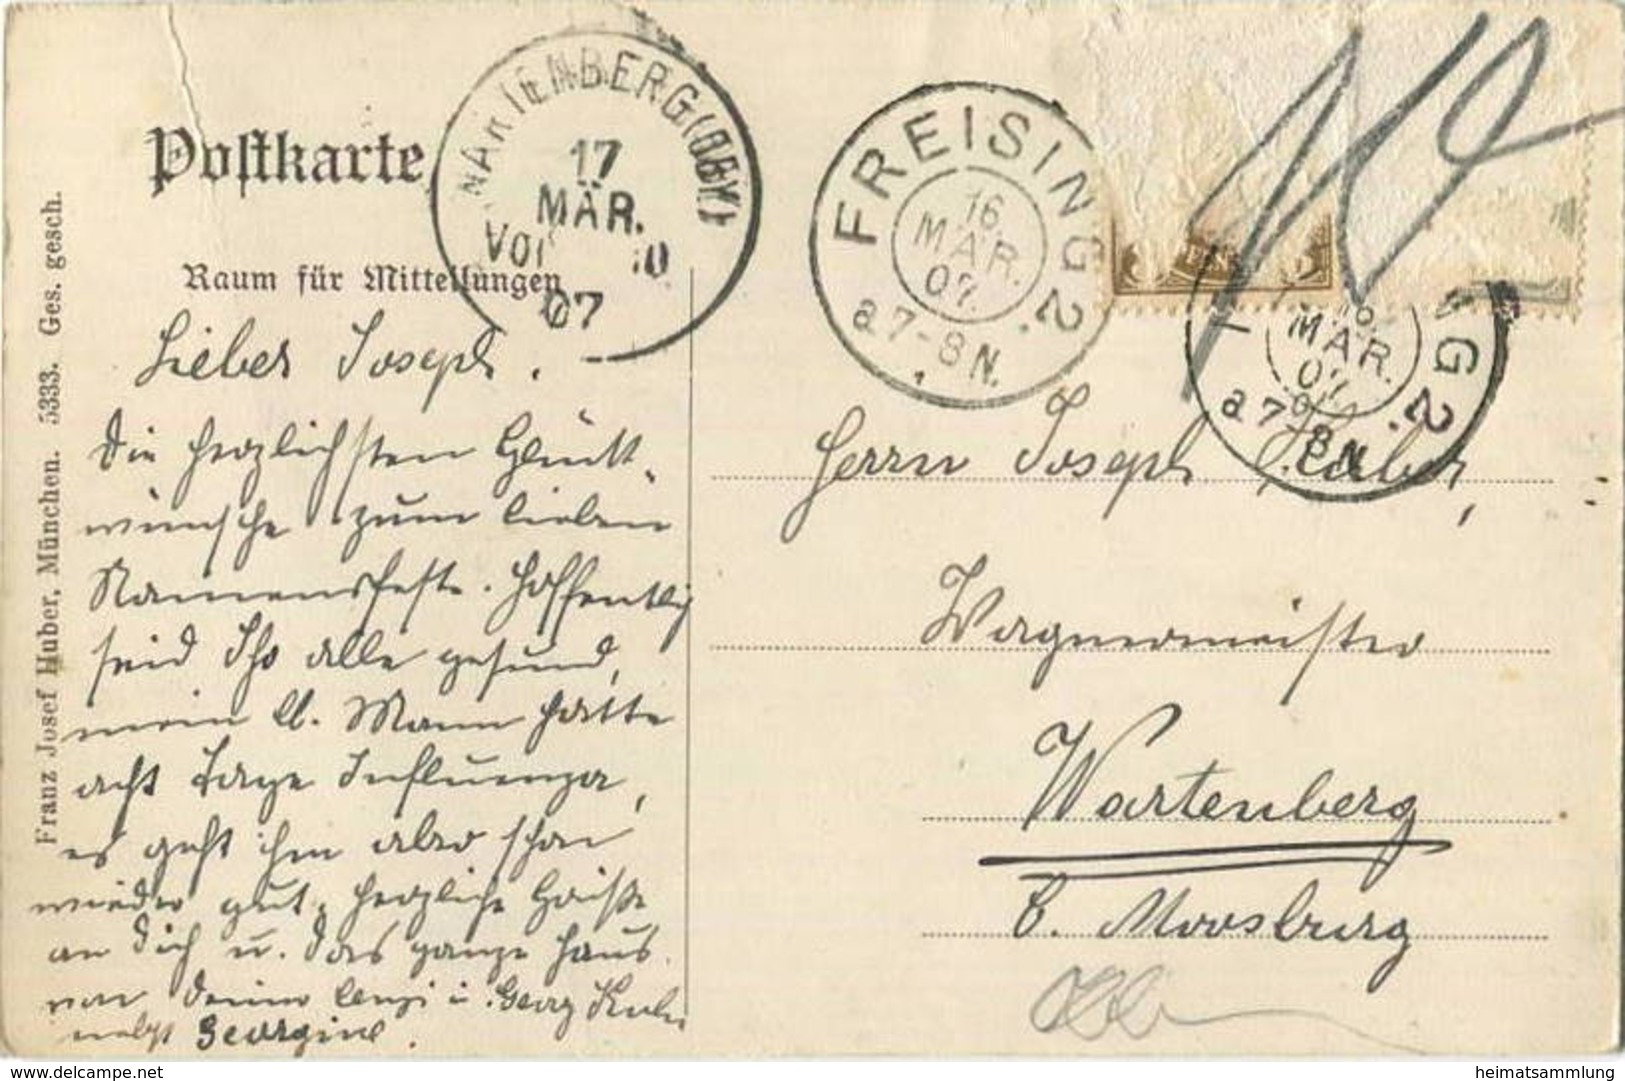 Postkarte
Raum für Mitteilungen
Franz Josef Huber, München. 5333. Ges. gesch.
MARIENBERG (OBY)
17
MÄR.
VOR 10
07
FREISING 2.
16
MÄR.
07.
a 7-8 N.
NG 2.
16
MÄR.
07
a 7-8 N.
10
Lieber Joseph.
Die herzlichsten Glück-
wünsche zum lieben
Namensfeste. Hoffentlich
seid Ihr alle gesund,
mein lb. Mann hatte
acht Tage Influenza,
es geht ihm aber schon
wieder gut. herzliche Grüße
an Dich u. das ganze Haus
von Deiner Cenzi u. Georg
nebst Georgine.
Herrn Joseph
Wagnermeister
Wartenberg
b. Moosburg
heimatsammlung
delcampe.net